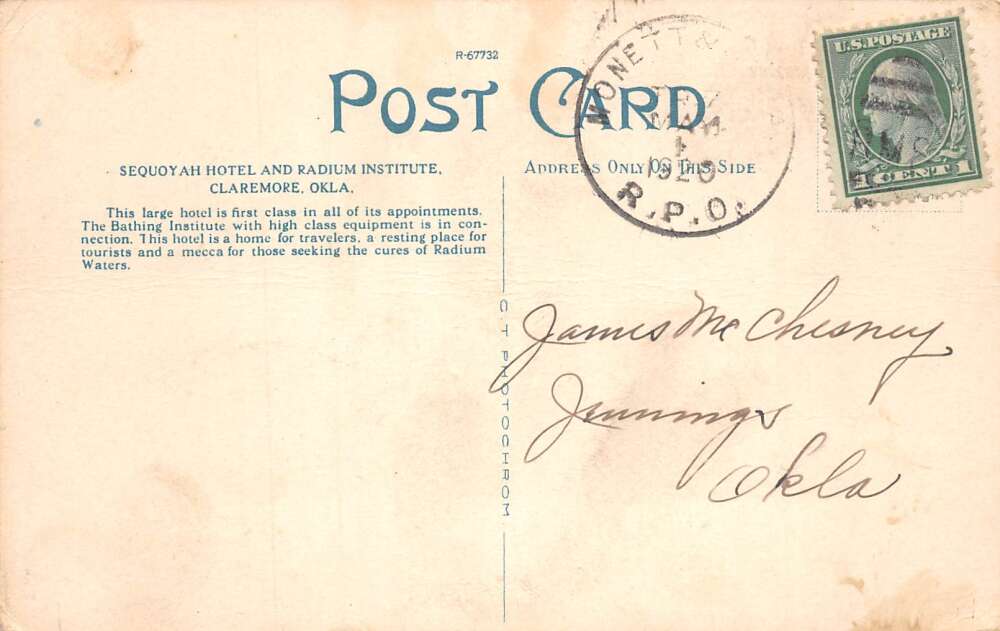 R-67732
POST CARD
SEQUOYAH HOTEL AND RADIUM INSTITUTE,
CLAREMORE, OKLA.
This large hotel is first class in all of its appointments.
The Bathing Institute with high class equipment is in con-
nection. This hotel is a home for travelers, a resting place for
tourists and a mecca for those seeking the cures of Radium
Waters.
ADDRESS ONLY ON THIS SIDE
MONETT &
MAY
1920
R.P.O.
U.S. POSTAGE
1 CENT 1
C T PHOTOCHROM
James McChesney
Jennings
Okla